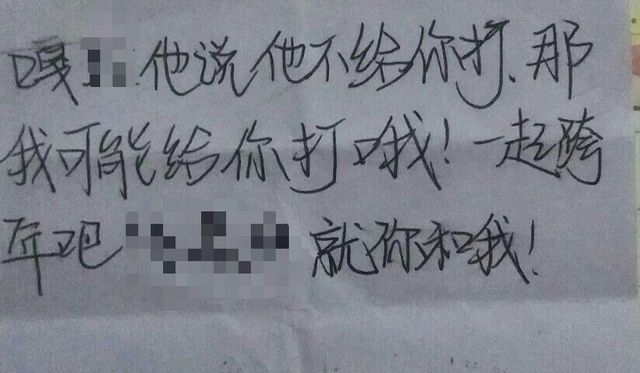 嘎 他说他不给你打、那
我可能给你打哦！一起跨
年吧 就你和我！